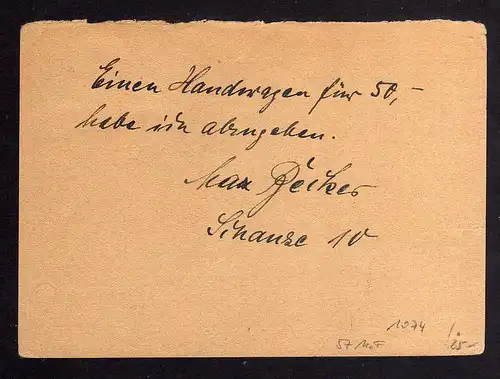 Einen Handwagen für 50,-
habe ich abzugeben.
Max Becker
Schanze 10
1074
57 MoF
25-